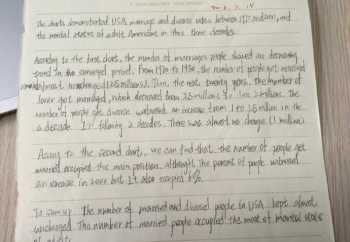 The charts demonstrated USA marriage and divorce rates between 1970 and 2000, and
the marital states of adult Americans in this three decades.
According to the first chart, the number of marriages people showed an decreasing
trend in the surveyed period. From 1970 to 1980, the number of people get married
almost (2.5 millions). Then, the next twenty years, the number of
lower got married, which decreased from 2.5 millions to 2 millions. The
number of people divorce witnessed an increase from 1 to 1.5 million in the
a decade. In following 2 decades. There was almost no change (1 million)
According to the second chart, we can find that, the number of people get
married occupied the main position, although the percent of people widowed
an increase in 2000 but It also occupied %.
To sum up The number of married and divorced people in USA kept almost
unchanged. The number of married people occupied the most of marital states
of adults.